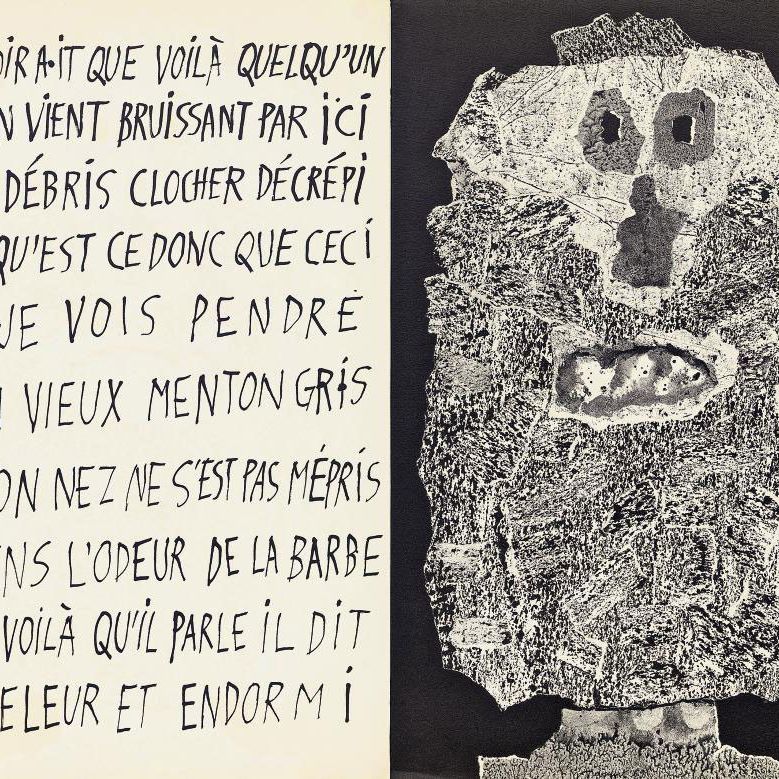 OIRA·IT QUE VOILÀ QUELQU'UN
N VIENT BRUISSANT PAR ICI
DÉBRIS CLOCHER DÉCRÉPI
QU'EST CE DONC QUE CECI
JE VOIS PENDRE
VIEUX MENTON GRIS
ON NEZ NE S'EST PAS MÉPRIS
ENS L'ODEUR DE LA BARBE
VOILÀ QU'IL PARLE IL DIT
ELEUR ET ENDORMI